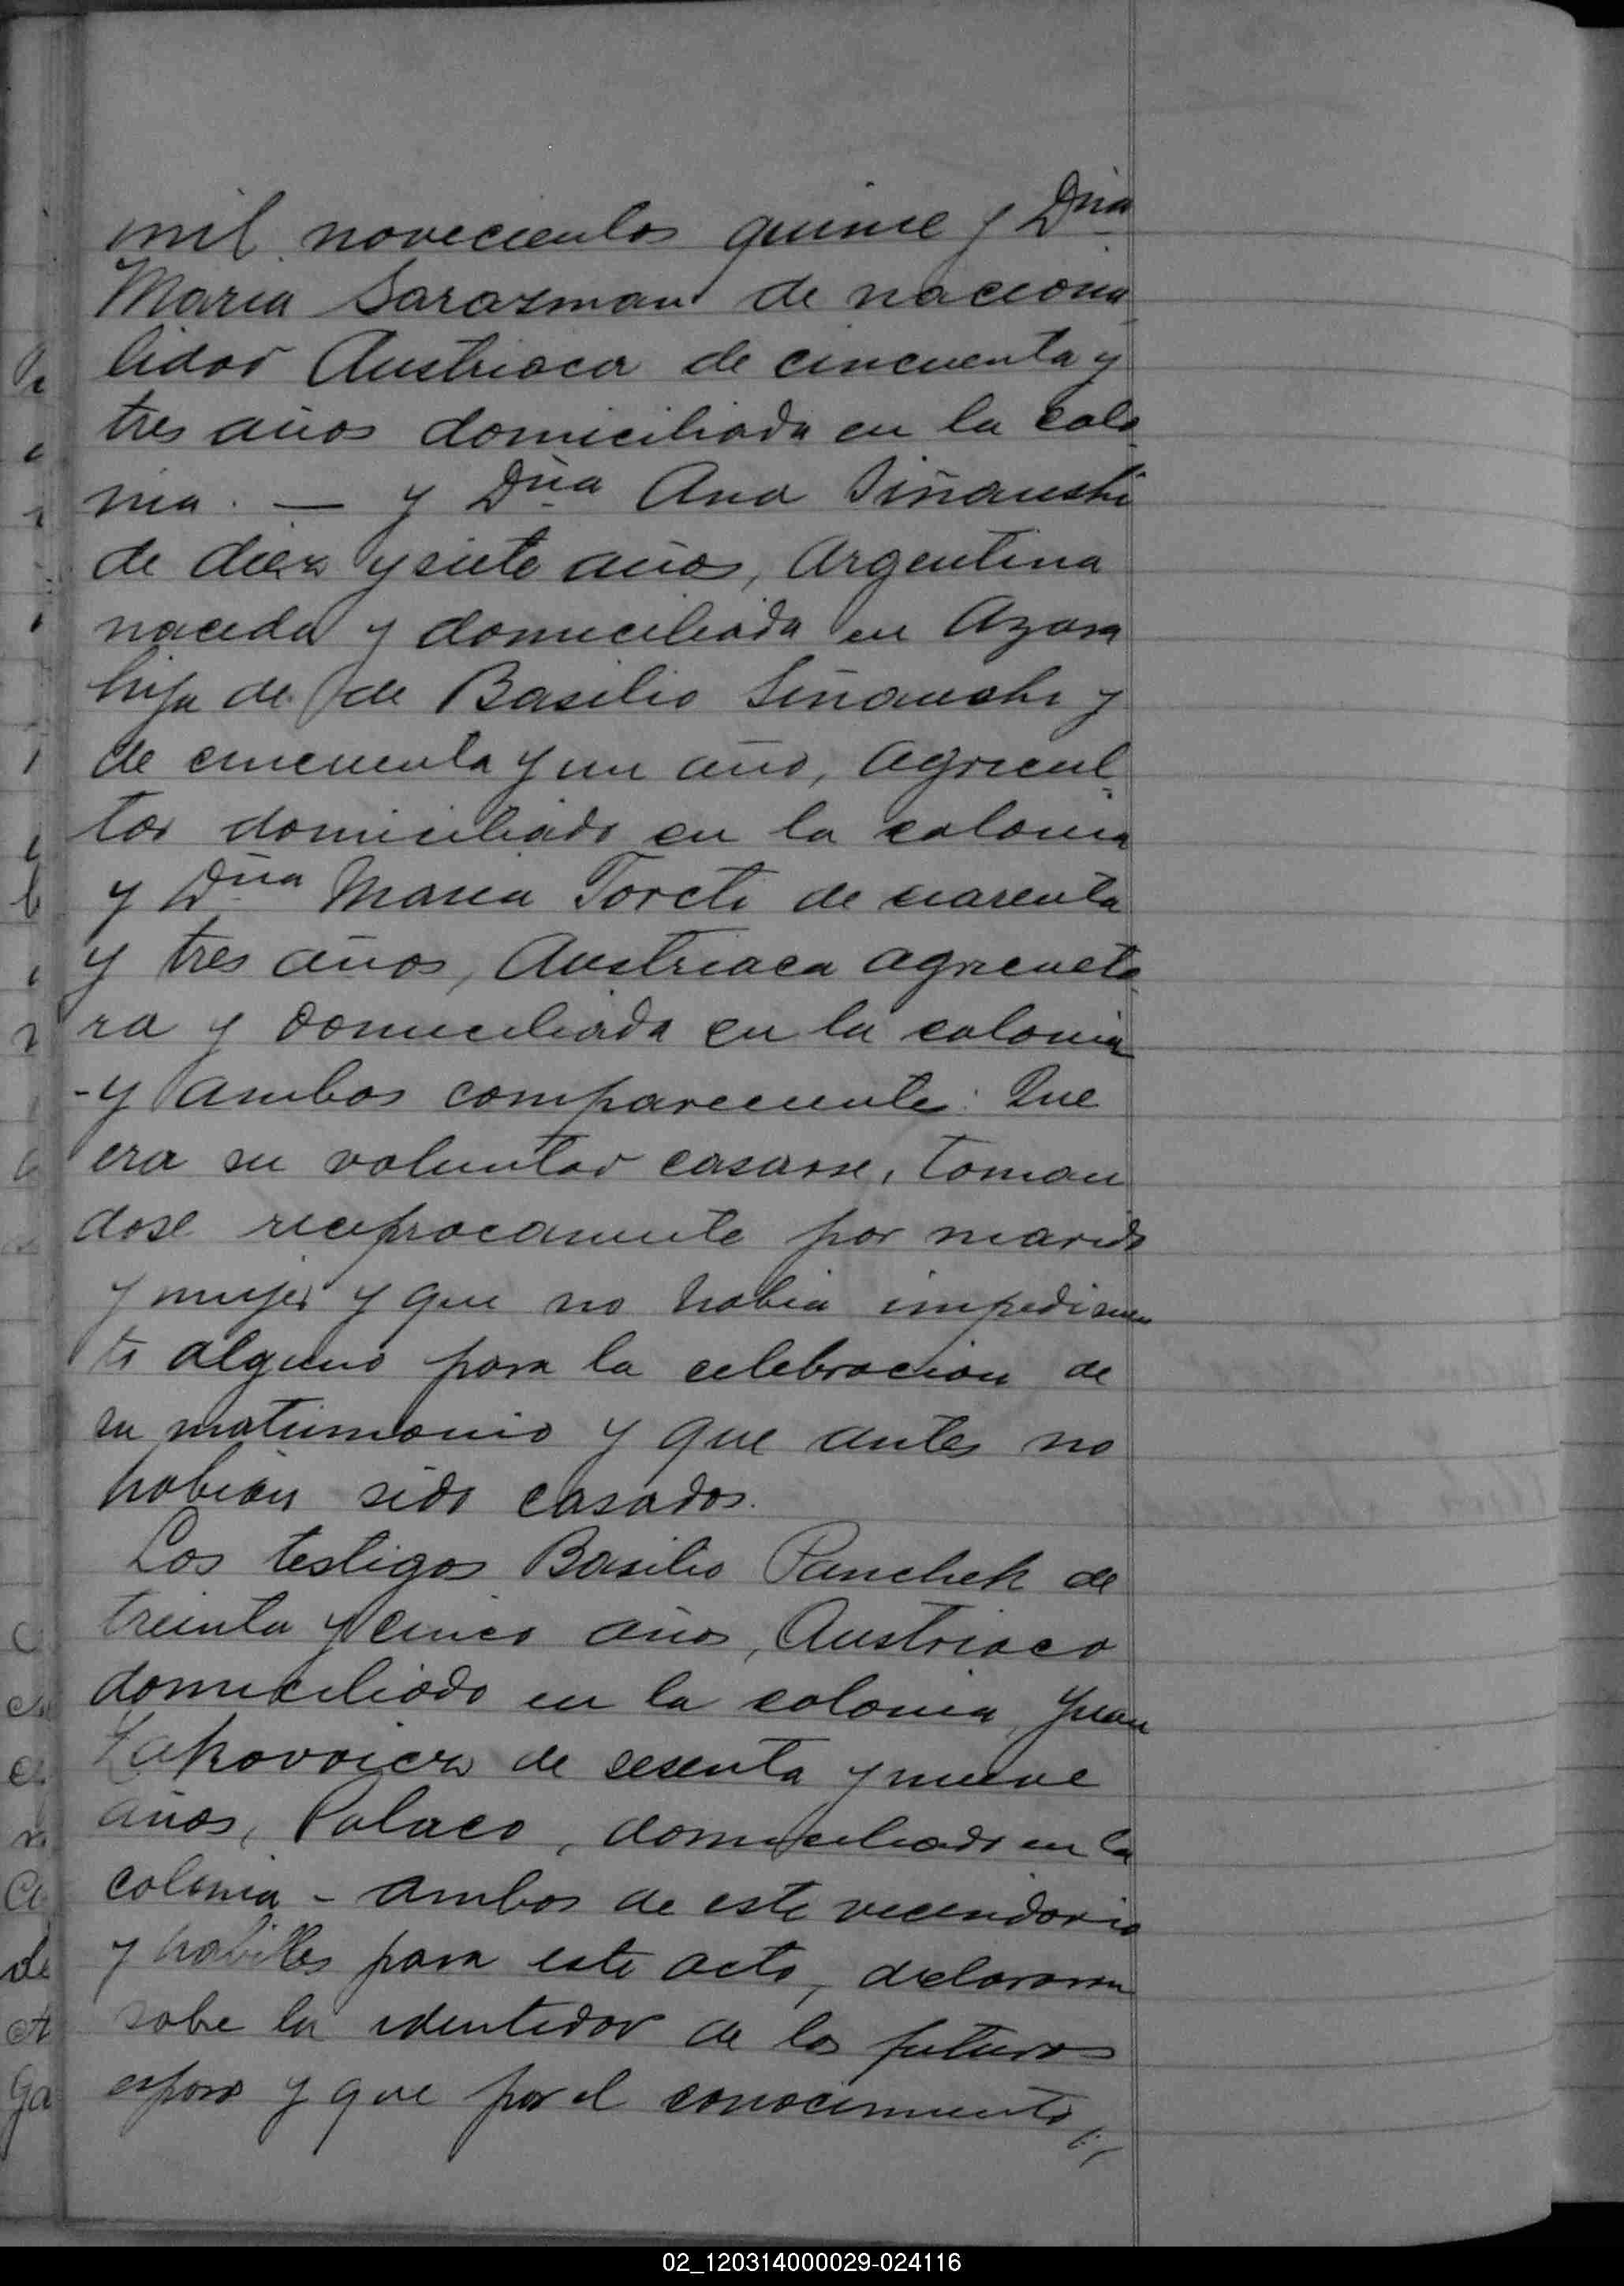 mil novecientos quince y Dña
Maria Sarazman de naciona
lidad Austriaca de cincuenta y
tres años domiciliada en la colo
nia. — y Dña Ana Siñauski
de diez y siete años, Argentina
nacida y domiciliada en Azara
hija de de Basilio Siñauski y
de cincuenta y un año, agricul
tor domiciliado en la colonia
y Dña Maria Torcti de cuarenta
y tres años, Austriaca agriculto
ra y domiciliada en la colonia
- y ambos comparecientes: Que
era su voluntad casarse, toman
dose reciprocamente por marido
y mujer y que no habia impedimen
to alguno para la celebracion de
su matrimonio y que antes no
habian sido casados.
Los testigos Basilio Panchek de
treinta y cinco años, Austriaco
domiciliado en la colonia, Juan
de sesenta y nueve
años, Polaco, domiciliado en la
colonia - ambos de este vecindario
y habilles para este acto, declararon
sobre la identidad de los futuros
esposos y que por el conocimiento
02_120314000029-024116